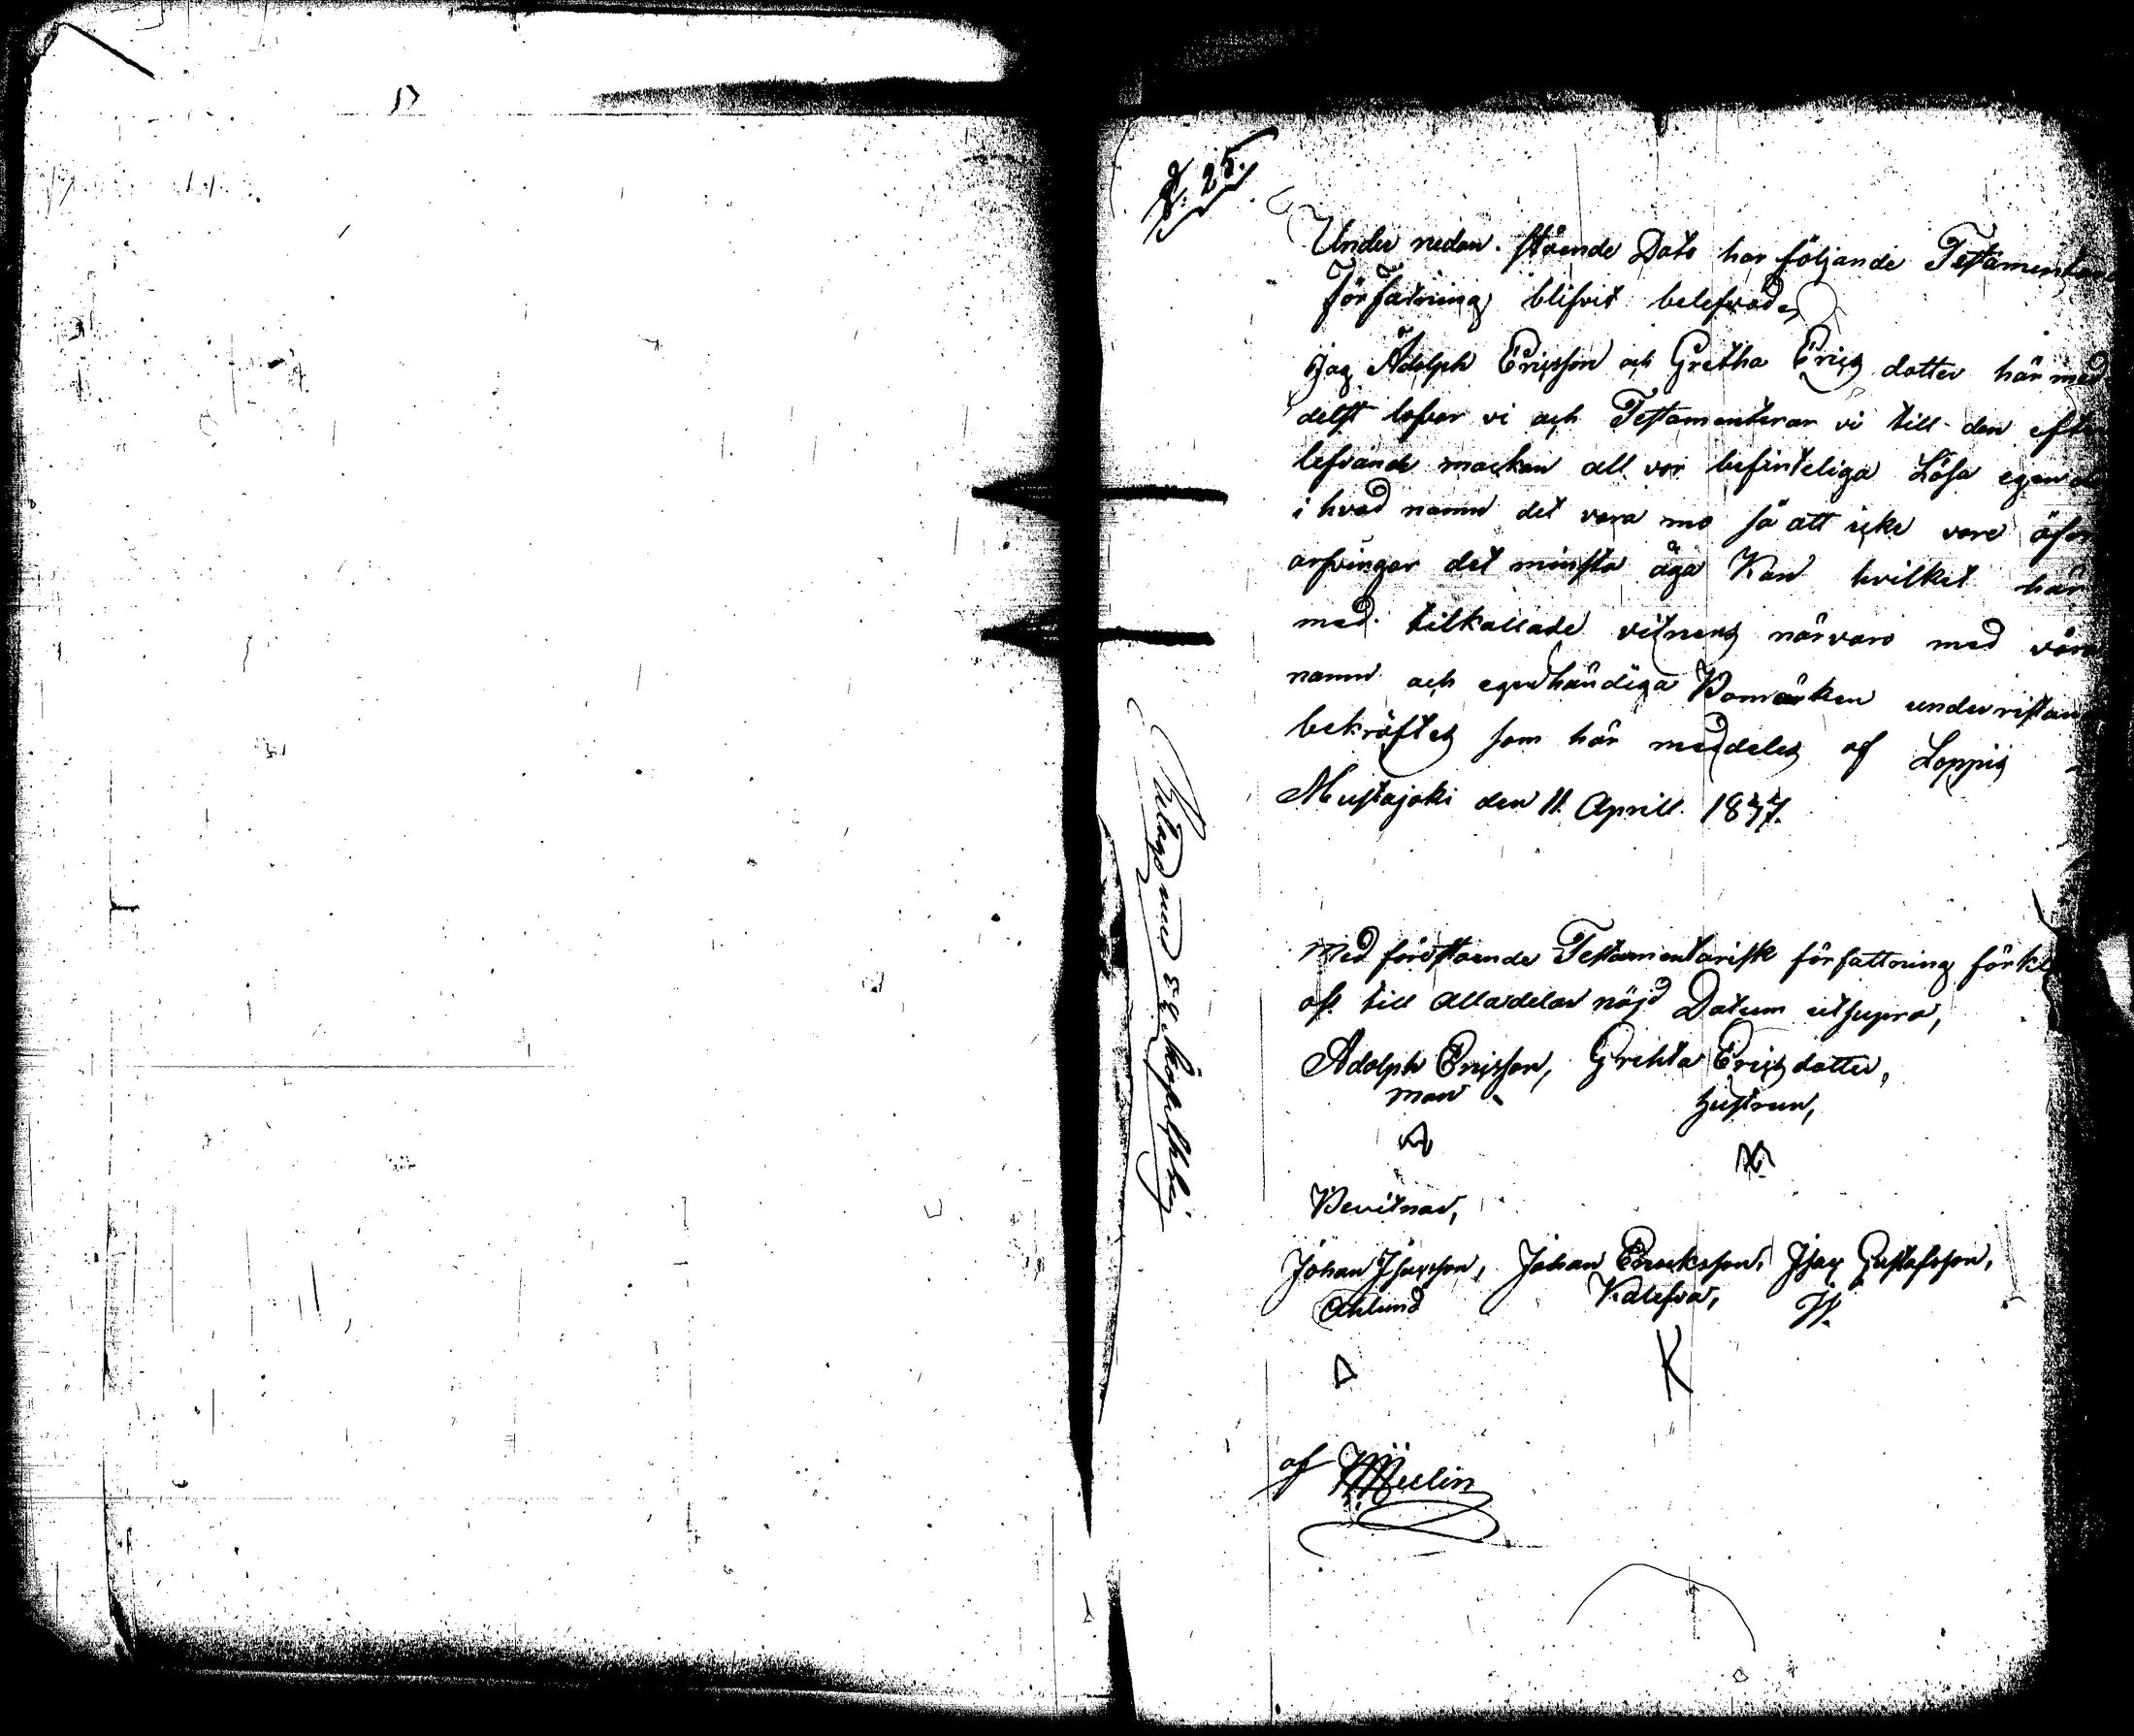 §. 25.
Under nedan. stående Dato har följande Testamentar
förfatning blifvit belefvad,
Jag Adolph Ericsson och Gretha Erics dotter här med
delst lofvar vi och Testamenterar vi till den efter
lefvande mackan all vor befinteliga Lösa egend
i hvad namn det vara mo så att icke vore öfer
arfvingar det minsta äga Kan hvilket här
med. tilkallade vitnens närvaro med våra
namn och egenhändiga Bomärken underristan
bekräftes som här meddeles af Loppis
Mustajoki den 11. Aprill. 1837.
Med förestaende Testamentarisk författning förkl
oss till alladelar nöjd Datum utsupra,
Adolph Ericsson, Grehta Ericsdotter,
man hustrun,
Bevitnar,
Johan Isacsson, Johan Ericksson, Isac Gustafsson,
Ahlund Kalefva,
K
af Melin